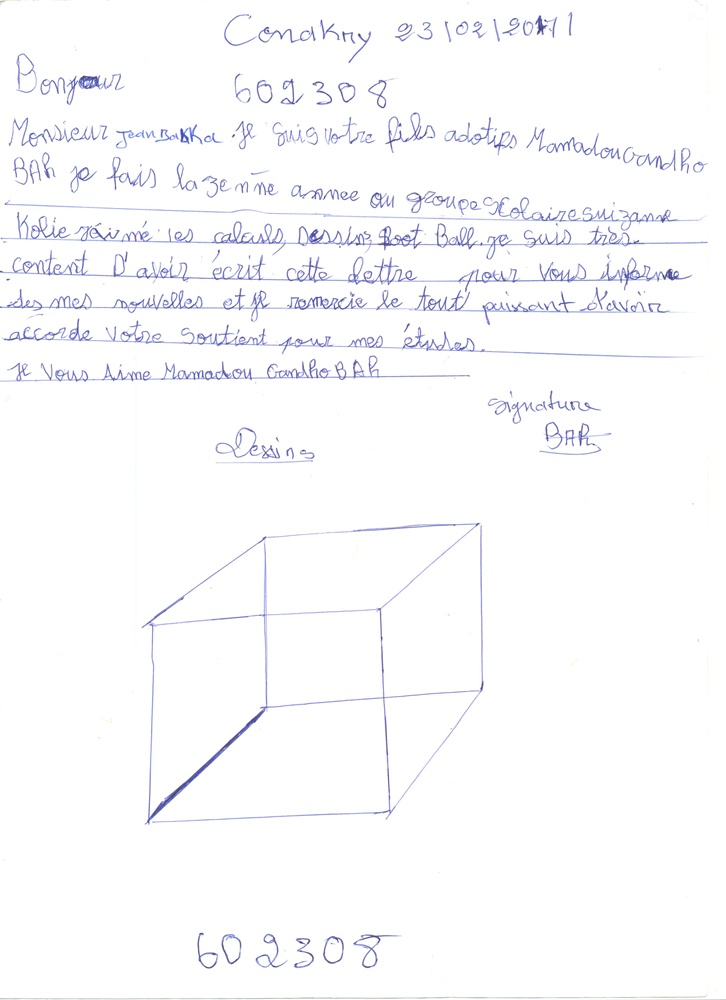 Conakry 23/02/2011
Bonjour 602308
Monsieur Jean Bakka. Je suis votre fils adotifs Mamadou Gandho
BAh je fais la 3enne annee au groupe Scolaire suizanne
Kolie j'aimé les calculs, Dessins, Foot Ball. je suis très.
content D'avoir écrit cette lettre pour vous informe
des mes nouvelles et je remercie le tout puissant d'avoir
accorde votre soutient pour mes études.
Je Vous Aime Mamadou Gandho BAh
signature
BAh
Dessins
602308